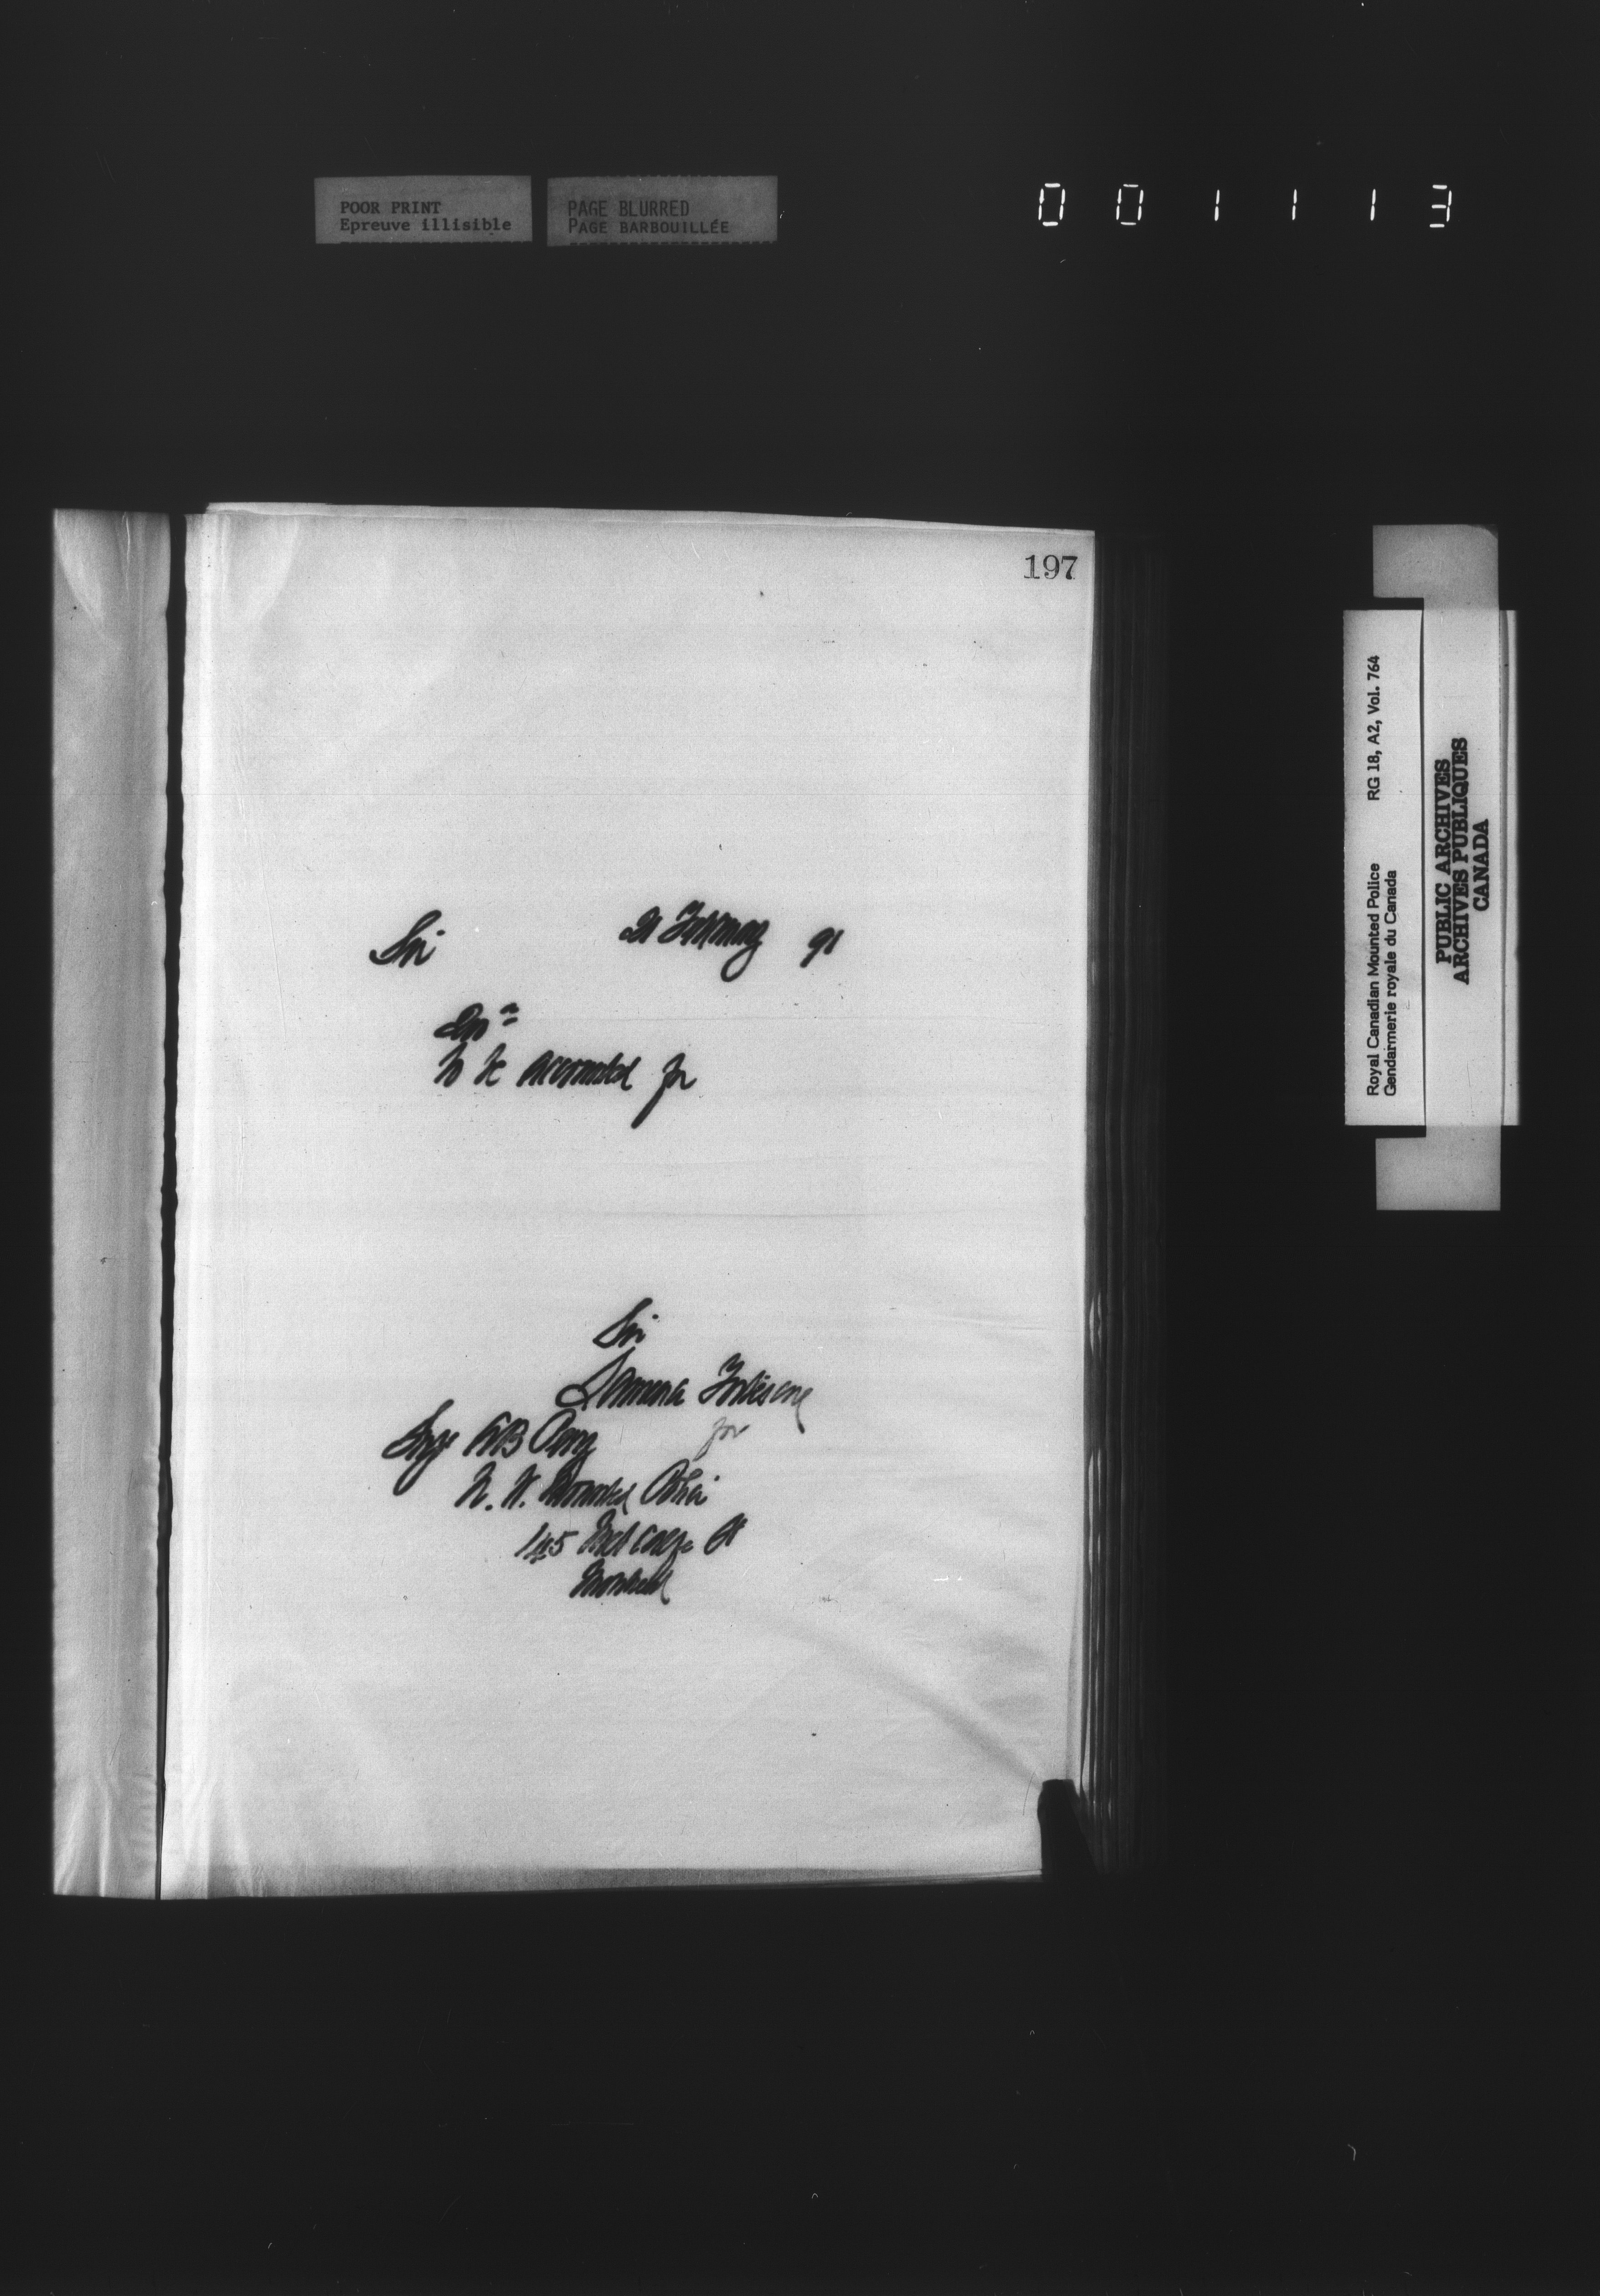 POOR PRINT
Epreuve illisible
PAGE BLURRED
PAGE BARBOUILLÉE
001113
197
Sir 21 February 91
to be accounted for
Sir
for
A B Perry
N. W. Mounted Police
145 Metcalfe St
Montreal
Royal Canadian Mounted Police RG 18, A2, Vol. 764
Gendarmerie royale du Canada
PUBLIC ARCHIVES
ARCHIVES PUBLIQUES
CANADA